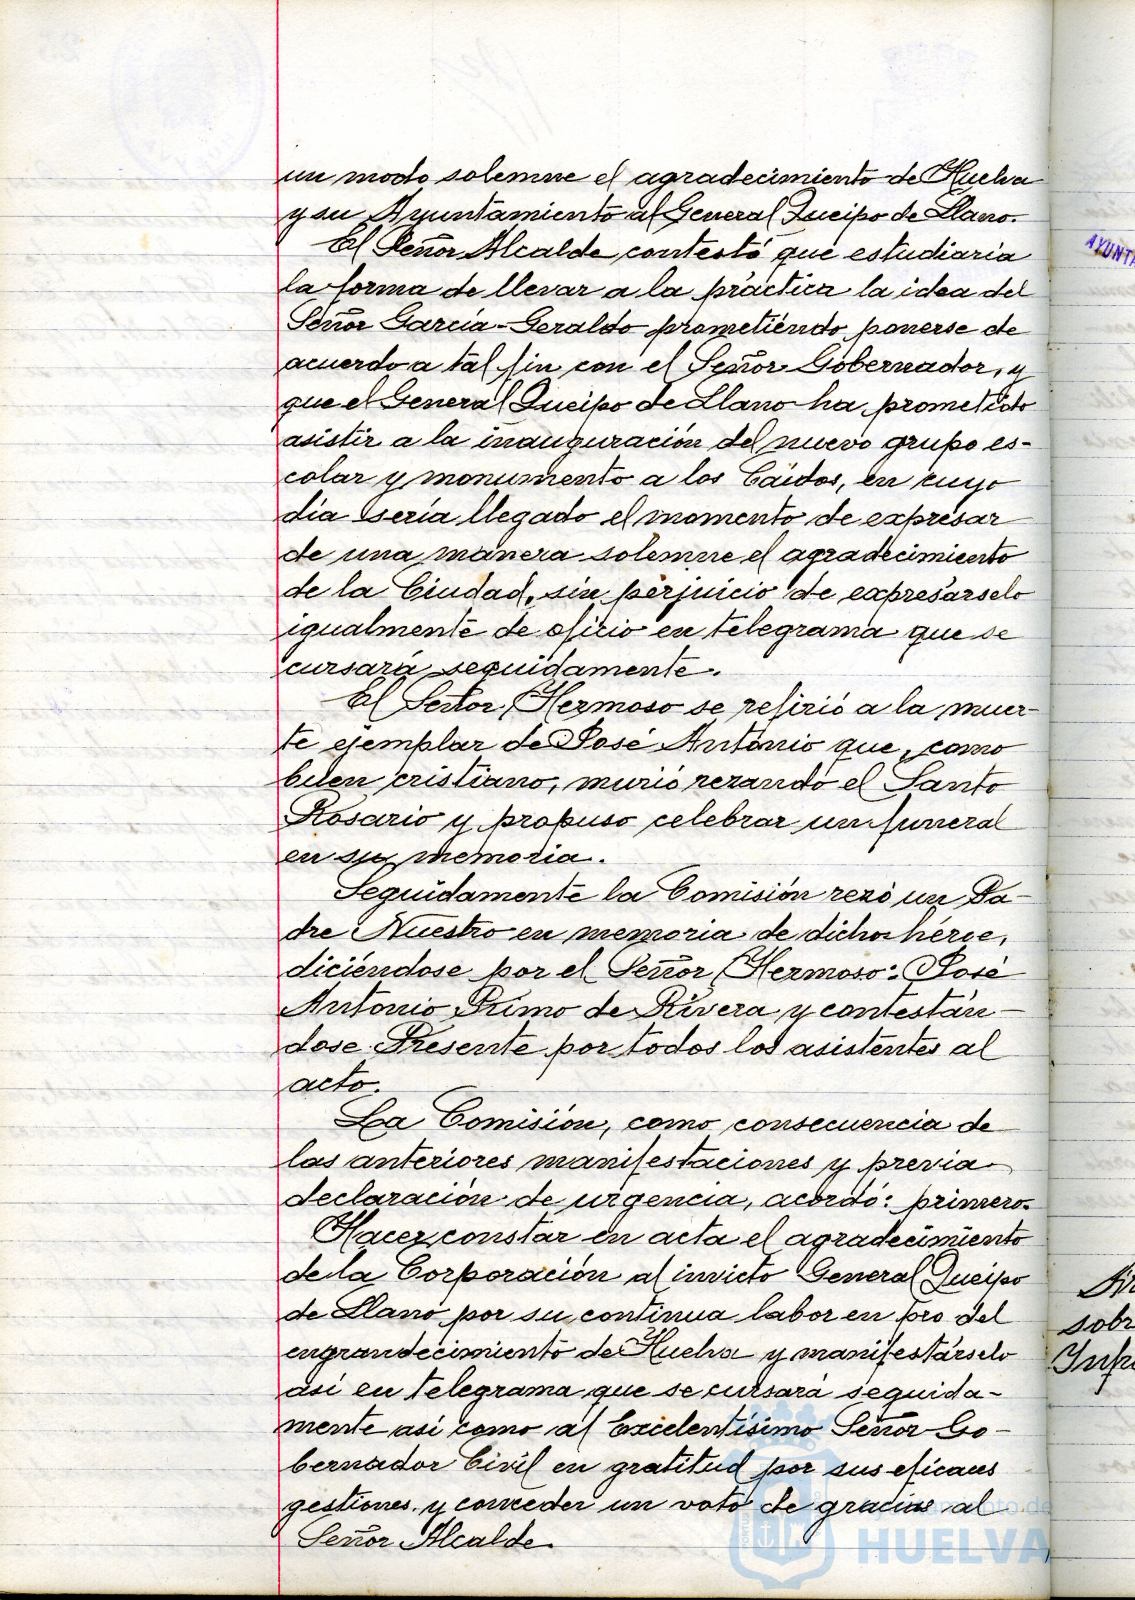 un modo solemne el agradecimiento de Huelva
y su Ayuntamiento al General Queipo de Llano.
El Señor Alcalde contestó que estudiaria
la forma de llevar a la práctica la idea del
Señor García-Geraldo prometiéndo ponerse de
acuerdo a tal fin con el Señor Gobernador, y
que el General Queipo de Llano ha prometido
asistir a la inauguración del nuevo grupo es-
colar y monumento a los Caidos, en cuyo
día sería llegado el momento de expresar
de una manera solemne el agradecimiento
de la Ciudad, sin perjuicio de expresárselo
igualmente de oficio en telegrama que se
cursará seguidamente.
El Señor Hermoso se refirió a la muer-
te ejemplar de José Antonio que, como
buen cristiano, murió rezando el Santo
Rosario y propuso celebrar un funeral
en su memoria.
Seguidamente la Comisión rezó un Pa-
dre Nuestro en memoria de dicho héroe,
diciéndose por el Señor Hermoso: José
Antonio Primo de Rivera y contestán-
dose Presente por todos los asistentes al
acto.
La Comisión, como consecuencia de
las anteriores manifestaciones y previa
declaración de urgencia, acordó: primero.
Hacer constar en acta el agradecimiento
de la Corporación al invicto General Queipo
de Llano por su continua labor en pro del
engrandecimiento de Huelva y manifestárselo
así en telegrama que se cursará seguida-
mente así como al Excelentísimo Señor Go-
bernador Civil en gratitud por sus eficaces
gestiones y conceder un voto de gracias al
Señor Alcalde.
AYUNTA
sobr
Ayuntamiento de
HUELVA